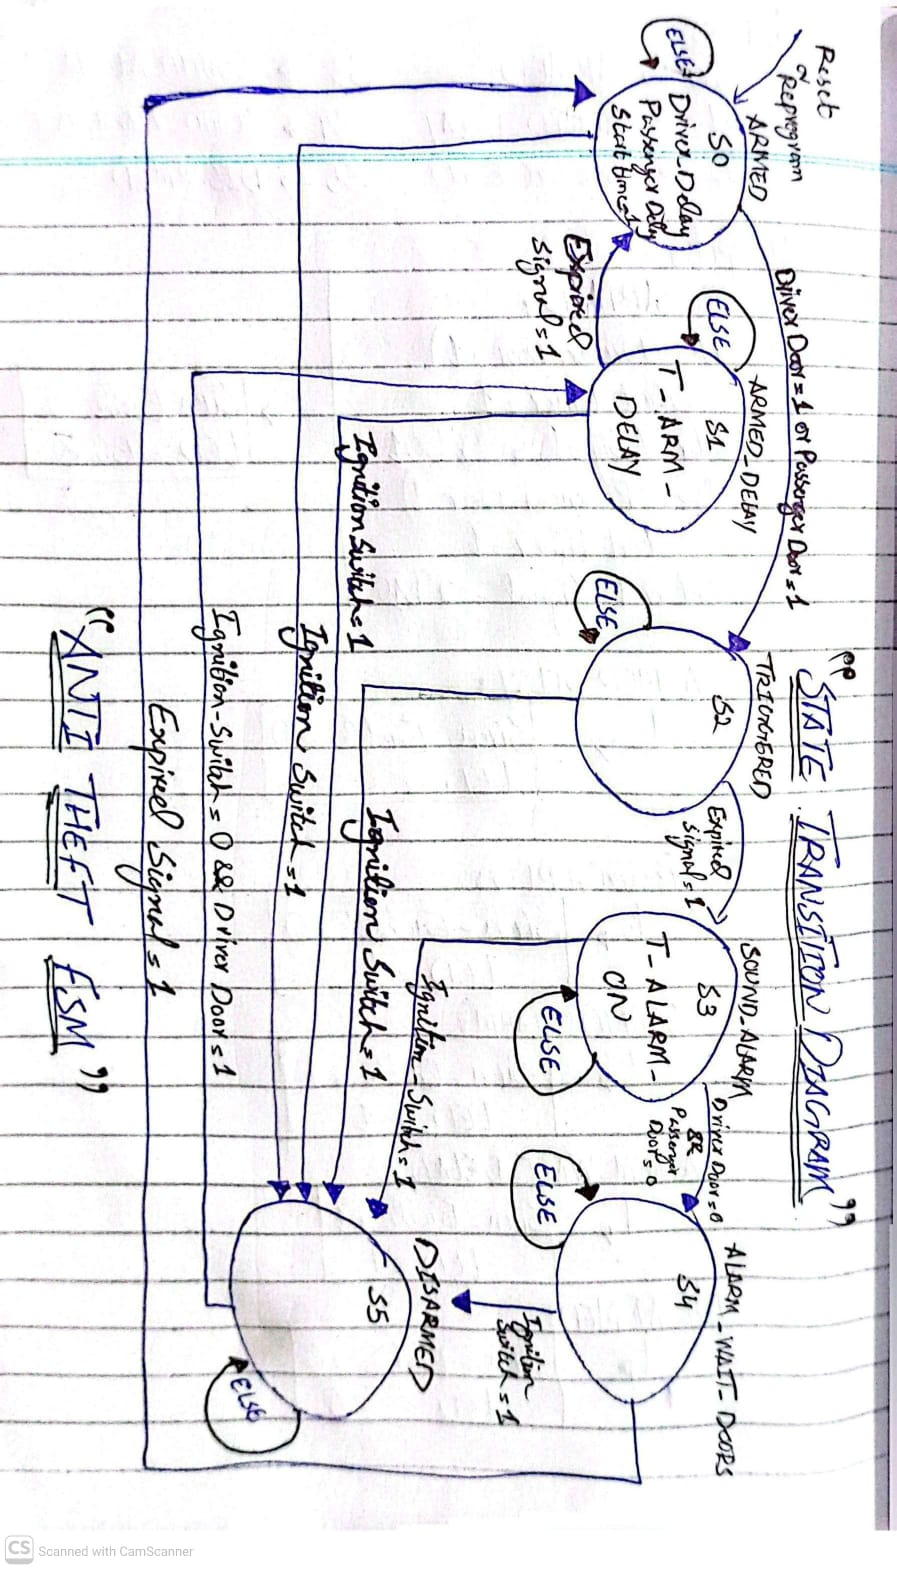 "STATE TRANSITION DIAGRAM"
Reset
or
Reprogram
ARMED
S0
Driver_Delay
Passenger Dely
Start timer=1
ELSE
Driver Door=1 or Passenger Door=1
Expired
signal=1
ARMED_DELAY
S1
T-ARM-
DELAY
ELSE
TRIGGERED
S2
ELSE
Expired
signal=1
SOUND_ALARM
S3
T-ALARM-
ON
ELSE
Driver Door=0
&&
Passenger
Door=0
ALARM_WAIT_DOORS
S4
ELSE
Ignition
Switch=1
DISARMED
S5
ELSE
Ignition Switch=1
Ignition Switch=1
Ignition Switch=1
Ignition-Switch=1
Ignition-Switch=0 && Driver Door=1
Expired Signal=1
"ANTI THEFT FSM"
CS Scanned with CamScanner